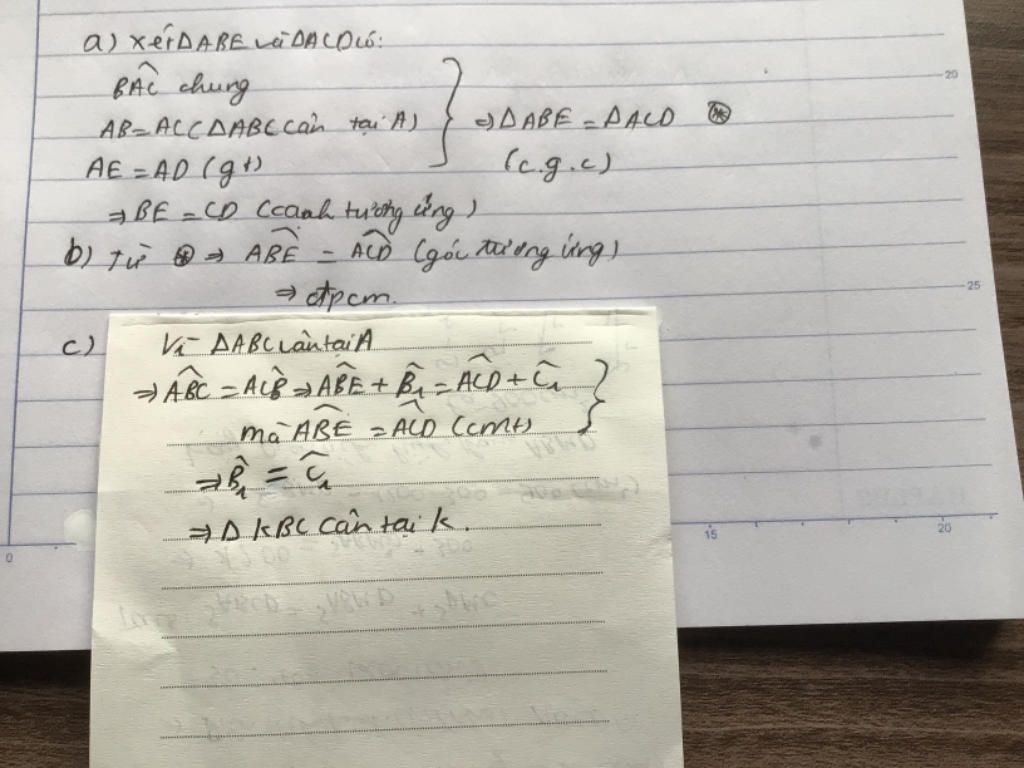 a) Xét ΔABE và ΔACD có:
BAC chung
AB = AC (ΔABC cân tại A)
AE = AD (gt)
⇒ ΔABE = ΔACD ⊛
(c.g.c)
⇒ BE = CD (cạnh tương ứng)
b) Từ ⊛ ⇒ ABE = ACD (góc tương ứng)
⇒ đpcm.
c) Vì ΔABC cân tại A
⇒ ABC = ACB ⇒ ABE + B₁ = ACD + C₁
mà ABE = ACD (cmt)
⇒ B₁ = C₁
⇒ Δ KBC cân tại K.
20
25
0
15
20